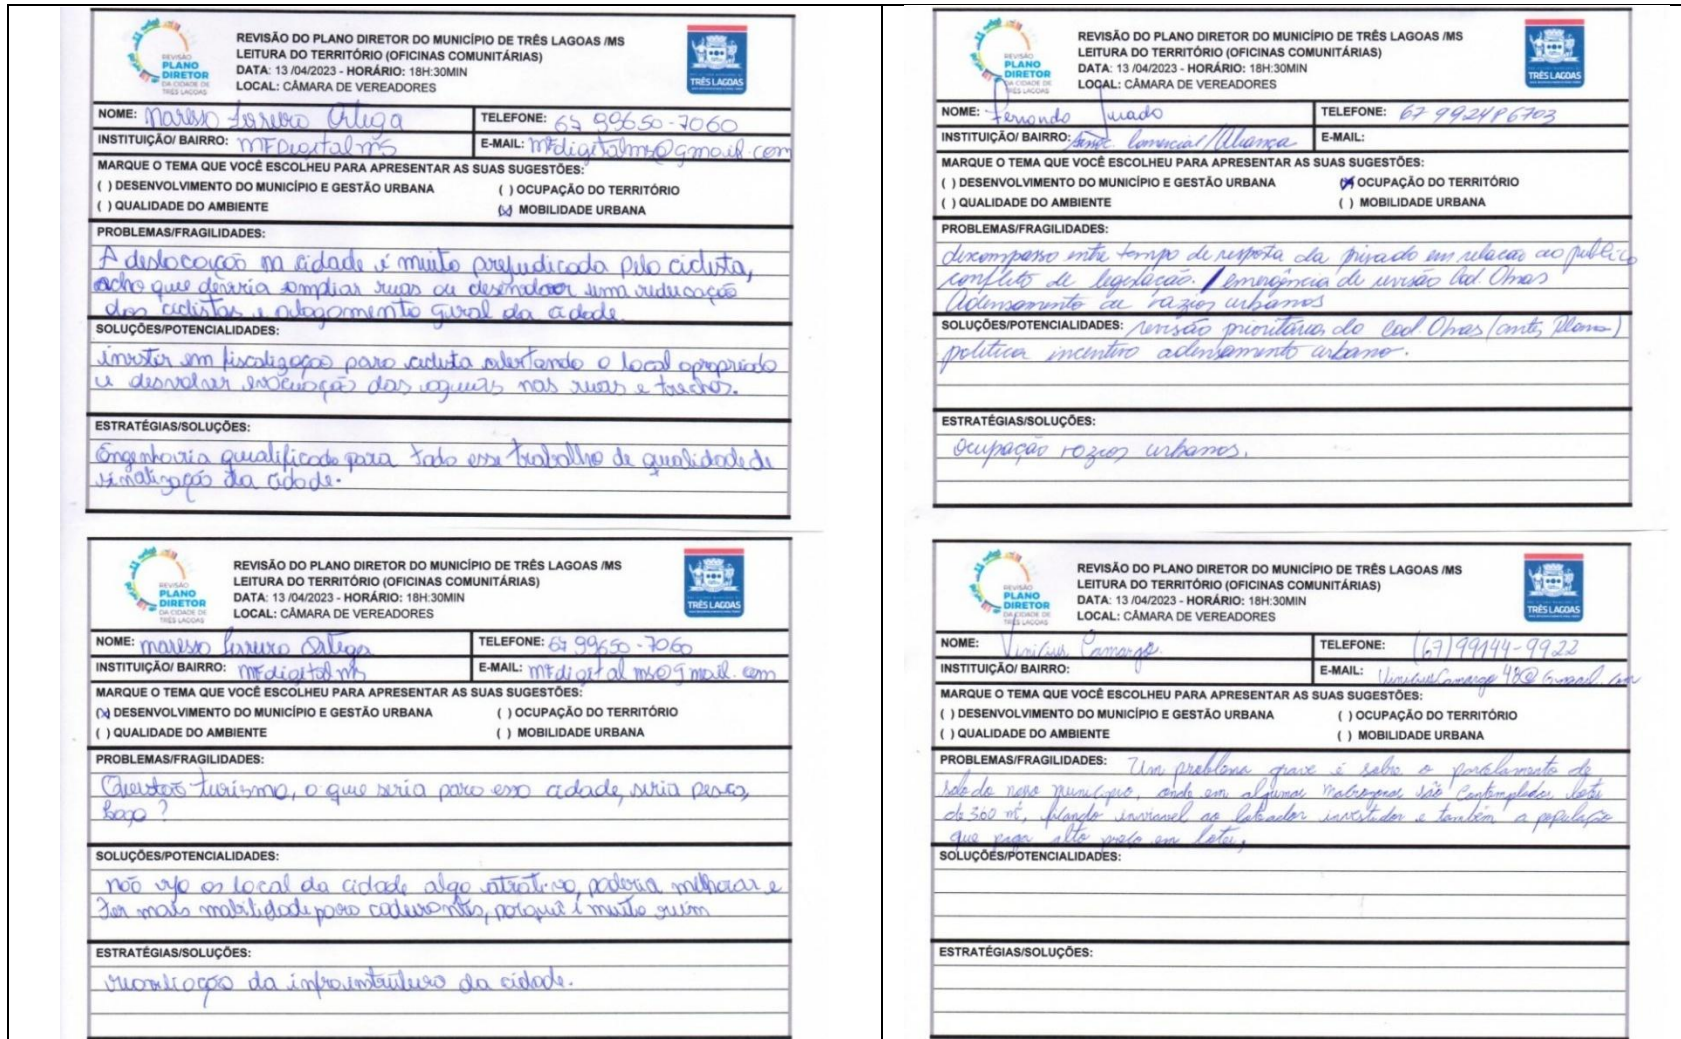 REVISÃO
PLANO
DIRETOR
DA CIDADE DE
TRÊS LAGOAS
REVISÃO DO PLANO DIRETOR DO MUNICÍPIO DE TRÊS LAGOAS /MS
LEITURA DO TERRITÓRIO (OFICINAS COMUNITÁRIAS)
DATA: 13 /04/2023 - HORÁRIO: 18H:30MIN
LOCAL: CÂMARA DE VEREADORES
TRÊS LAGOAS
NOME: Ortega
TELEFONE: 67 99650-7060
INSTITUIÇÃO/ BAIRRO: MFDigitalms
E-MAIL: MFdigitalms@gmail.com
MARQUE O TEMA QUE VOCÊ ESCOLHEU PARA APRESENTAR AS SUAS SUGESTÕES:
( ) DESENVOLVIMENTO DO MUNICÍPIO E GESTÃO URBANA ( ) OCUPAÇÃO DO TERRITÓRIO
( ) QUALIDADE DO AMBIENTE (x) MOBILIDADE URBANA
PROBLEMAS/FRAGILIDADES:
A deslocação na cidade é muito prejudicada pelo ciclista,
acho que deveria ampliar ruas ou uma reducação
dos ciclistas e alagamento geral da cidade.
SOLUÇÕES/POTENCIALIDADES:
investir em fiscalização para ciclista alertando o local apropriado
e das nas ruas e trechos.
ESTRATÉGIAS/SOLUÇÕES:
Engenharia qualificada para todo esse trabalho de qualidade de
sinalização da cidade.
REVISÃO
PLANO
DIRETOR
DA CIDADE DE
TRÊS LAGOAS
REVISÃO DO PLANO DIRETOR DO MUNICÍPIO DE TRÊS LAGOAS /MS
LEITURA DO TERRITÓRIO (OFICINAS COMUNITÁRIAS)
DATA: 13 /04/2023 - HORÁRIO: 18H:30MIN
LOCAL: CÂMARA DE VEREADORES
TRÊS LAGOAS
NOME: Ortega
TELEFONE: 67 99650-7060
INSTITUIÇÃO/ BAIRRO: MFdigitalms
E-MAIL: MFdigitalms@gmail.com
MARQUE O TEMA QUE VOCÊ ESCOLHEU PARA APRESENTAR AS SUAS SUGESTÕES:
(x) DESENVOLVIMENTO DO MUNICÍPIO E GESTÃO URBANA ( ) OCUPAÇÃO DO TERRITÓRIO
( ) QUALIDADE DO AMBIENTE ( ) MOBILIDADE URBANA
PROBLEMAS/FRAGILIDADES:
Questão turismo, o que seria para essa cidade, seria pesca,
lago?
SOLUÇÕES/POTENCIALIDADES:
não vejo os local da cidade algo atrativo, poderia melhorar e
Ter mais mobilidade para cadeirantes, porquê é muito ruim
ESTRATÉGIAS/SOLUÇÕES:
da cidade.
REVISÃO
PLANO
DIRETOR
DA CIDADE DE
TRÊS LAGOAS
REVISÃO DO PLANO DIRETOR DO MUNICÍPIO DE TRÊS LAGOAS /MS
LEITURA DO TERRITÓRIO (OFICINAS COMUNITÁRIAS)
DATA: 13 /04/2023 - HORÁRIO: 18H:30MIN
LOCAL: CÂMARA DE VEREADORES
TRÊS LAGOAS
NOME: Fernando Jurado
TELEFONE: 67 992486703
INSTITUIÇÃO/ BAIRRO: Comercial/Aliança
E-MAIL:
MARQUE O TEMA QUE VOCÊ ESCOLHEU PARA APRESENTAR AS SUAS SUGESTÕES:
( ) DESENVOLVIMENTO DO MUNICÍPIO E GESTÃO URBANA (x) OCUPAÇÃO DO TERRITÓRIO
( ) QUALIDADE DO AMBIENTE ( ) MOBILIDADE URBANA
PROBLEMAS/FRAGILIDADES:
descompasso entre tempo de resposta da privado em relação ao público
conflito de legislação. / emergência de revisão Cod. Obras
Adensamento de vazios urbanos
SOLUÇÕES/POTENCIALIDADES: revisão prioritária do Cod. Obras (antes Plano)
política incentivo adensamento urbano.
ESTRATÉGIAS/SOLUÇÕES:
Ocupação vazios urbanos.
REVISÃO
PLANO
DIRETOR
DA CIDADE DE
TRÊS LAGOAS
REVISÃO DO PLANO DIRETOR DO MUNICÍPIO DE TRÊS LAGOAS /MS
LEITURA DO TERRITÓRIO (OFICINAS COMUNITÁRIAS)
DATA: 13 /04/2023 - HORÁRIO: 18H:30MIN
LOCAL: CÂMARA DE VEREADORES
TRÊS LAGOAS
NOME: Vinicius Camargo
TELEFONE: (67)99144-9922
INSTITUIÇÃO/ BAIRRO:
E-MAIL: ViniciusCamargo48@Gmail.com
MARQUE O TEMA QUE VOCÊ ESCOLHEU PARA APRESENTAR AS SUAS SUGESTÕES:
( ) DESENVOLVIMENTO DO MUNICÍPIO E GESTÃO URBANA ( ) OCUPAÇÃO DO TERRITÓRIO
( ) QUALIDADE DO AMBIENTE ( ) MOBILIDADE URBANA
PROBLEMAS/FRAGILIDADES: Um problema grave é sobre o parcelamento de
solo do nosso município, onde em algumas são Contemplados lotes
de 360 m², ficando inviavel ao loteador investidor e também a população
que paga alto preço em lotes,
SOLUÇÕES/POTENCIALIDADES:
ESTRATÉGIAS/SOLUÇÕES: